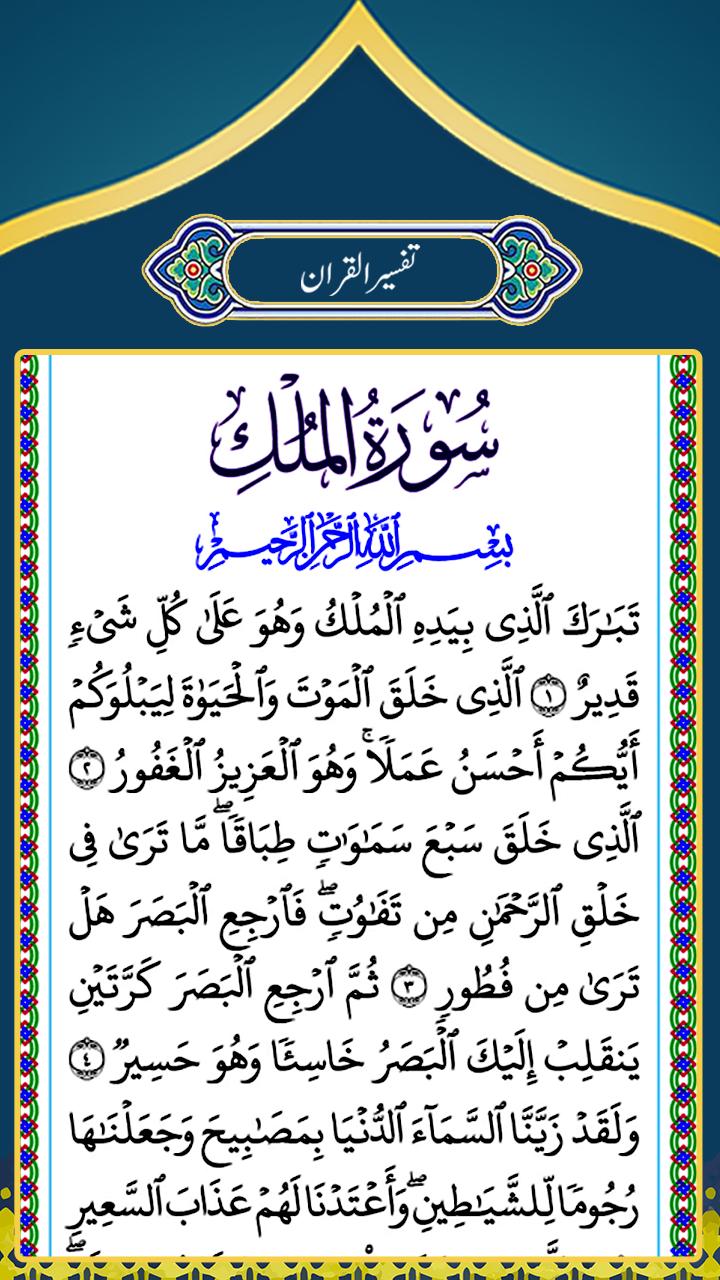 تفسیر القران
سُورَةُ المُلۡكِ
بِسۡمِ ٱللَّهِ ٱلرَّحۡمَٰنِ ٱلرَّحِيمِ
تَبَٰرَكَ ٱلَّذِي بِيَدِهِ ٱلۡمُلۡكُ وَهُوَ عَلَىٰ كُلِّ شَيۡءٖ
قَدِيرٌ ١ ٱلَّذِي خَلَقَ ٱلۡمَوۡتَ وَٱلۡحَيَوٰةَ لِيَبۡلُوَكُمۡ
أَيُّكُمۡ أَحۡسَنُ عَمَلٗاۚ وَهُوَ ٱلۡعَزِيزُ ٱلۡغَفُورُ ٢
ٱلَّذِي خَلَقَ سَبۡعَ سَمَٰوَٰتٖ طِبَاقٗاۖ مَّا تَرَىٰ فِي
خَلۡقِ ٱلرَّحۡمَٰنِ مِن تَفَٰوُتٖۖ فَٱرۡجِعِ ٱلۡبَصَرَ هَلۡ
تَرَىٰ مِن فُطُورٖ ٣ ثُمَّ ٱرۡجِعِ ٱلۡبَصَرَ كَرَّتَيۡنِ
يَنقَلِبۡ إِلَيۡكَ ٱلۡبَصَرُ خَاسِئٗا وَهُوَ حَسِيرٞ ٤
وَلَقَدۡ زَيَّنَّا ٱلسَّمَآءَ ٱلدُّنۡيَا بِمَصَٰبِيحَ وَجَعَلۡنَٰهَا
رُجُومٗا لِّلشَّيَٰطِينِۖ وَأَعۡتَدۡنَا لَهُمۡ عَذَابَ ٱلسَّعِيرِ